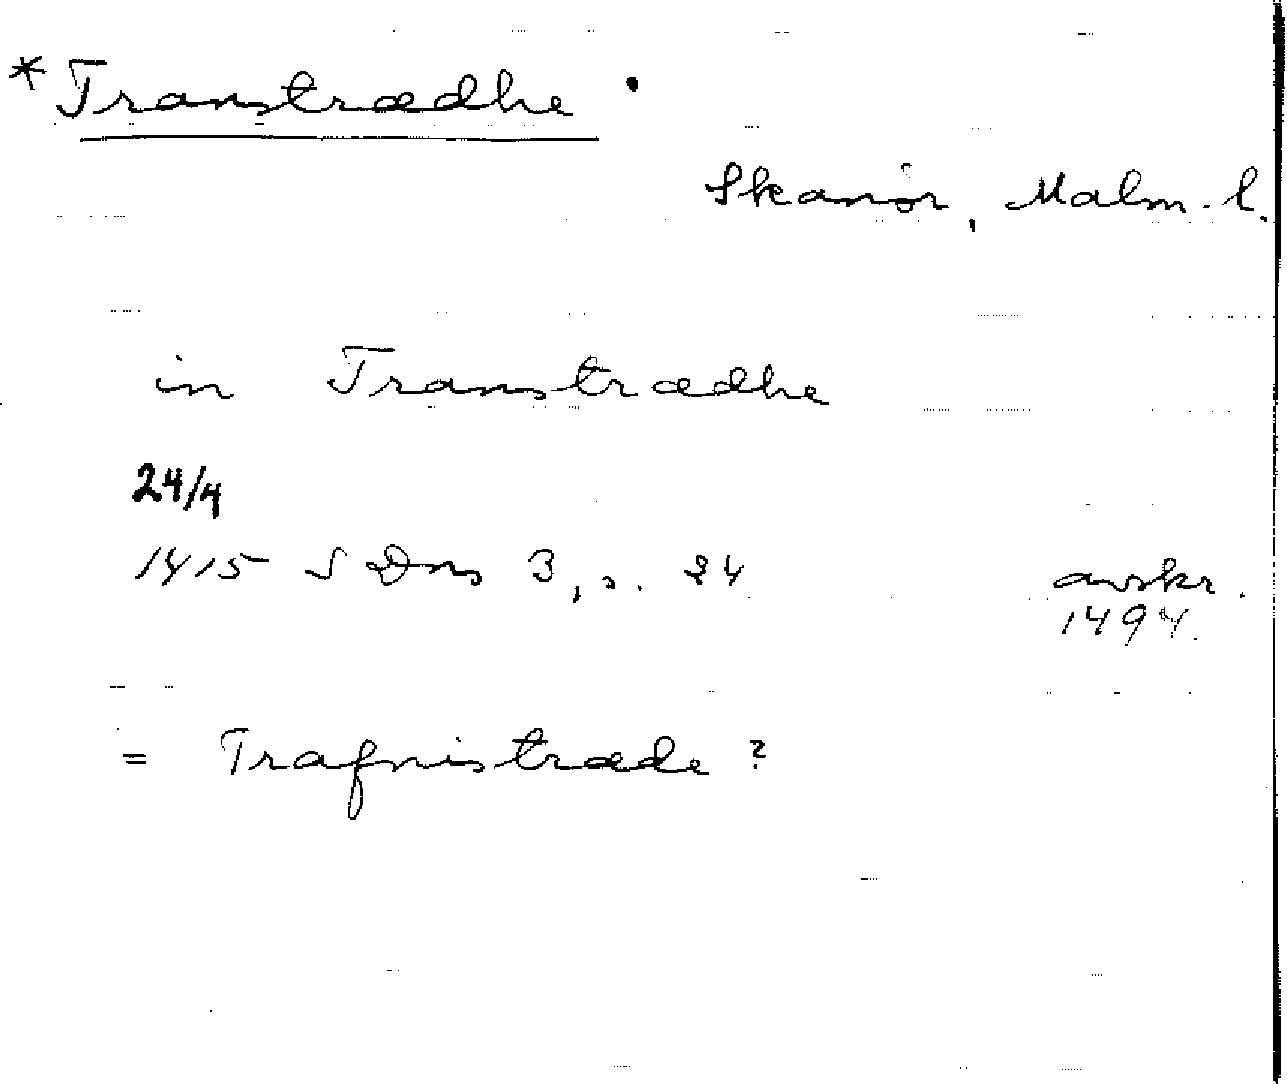 *Transtrædhe.
Skanör, Malm. l.
in Transtrædhe
24/4
1415 S Dns 3, s. 24
avskr.
1494.
= Trafnistræde?